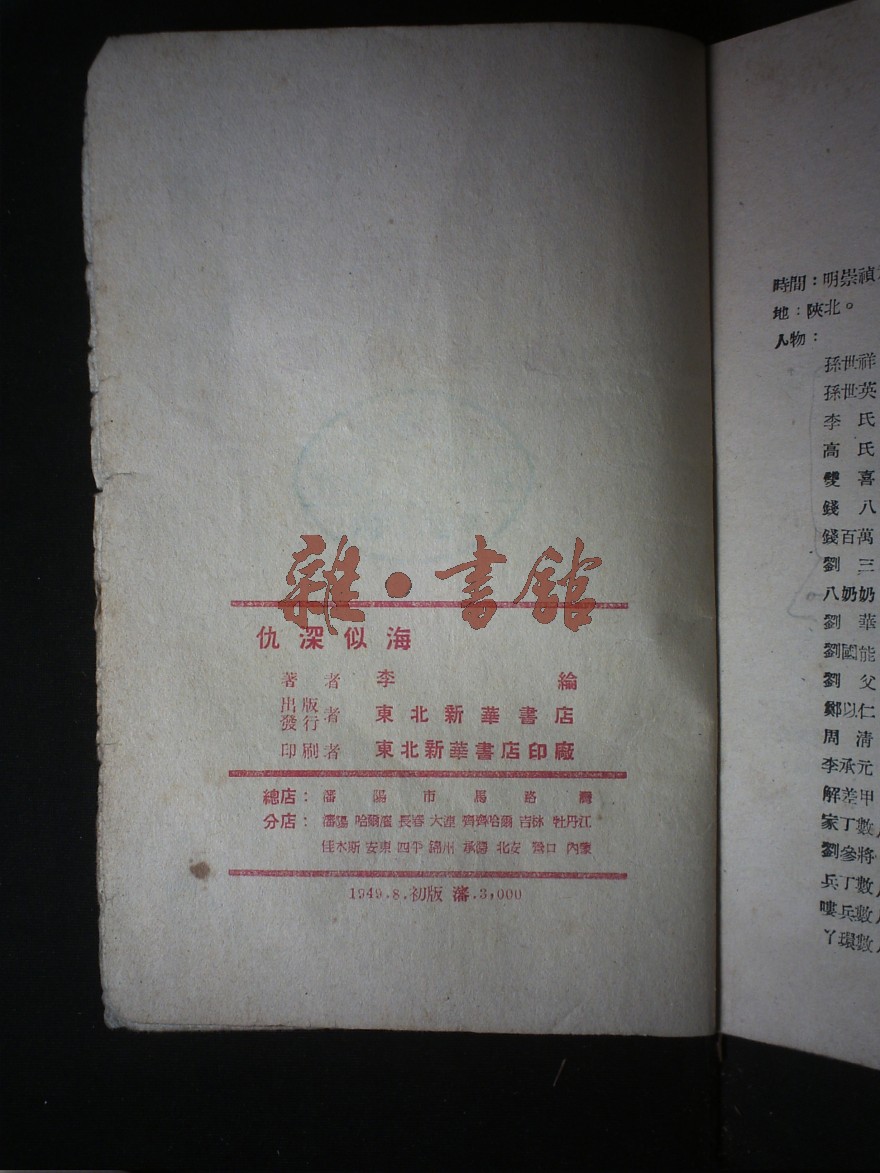 雜·書館
仇深似海
著者 李綸
出版發行者 東北新華書店
印刷者 東北新華書店印廠
總店：瀋陽市馬路灣
分店：瀋陽 哈爾濱 長春 大連 齊齊哈爾 吉林 牡丹江
佳木斯 安東 四平 錦州 承德 北安 營口 內蒙
1949.8.初版 瀋.3,000
時間：明崇禎
地：陝北。
人物：
孫世祥
孫世英
李氏
高氏
雙喜
錢八
錢百萬
劉三
八奶奶
劉華
劉國能
劉父
鄭以仁
周清
李承元
解差甲
家丁數
劉參將
兵丁數
嘍兵數
丫環數